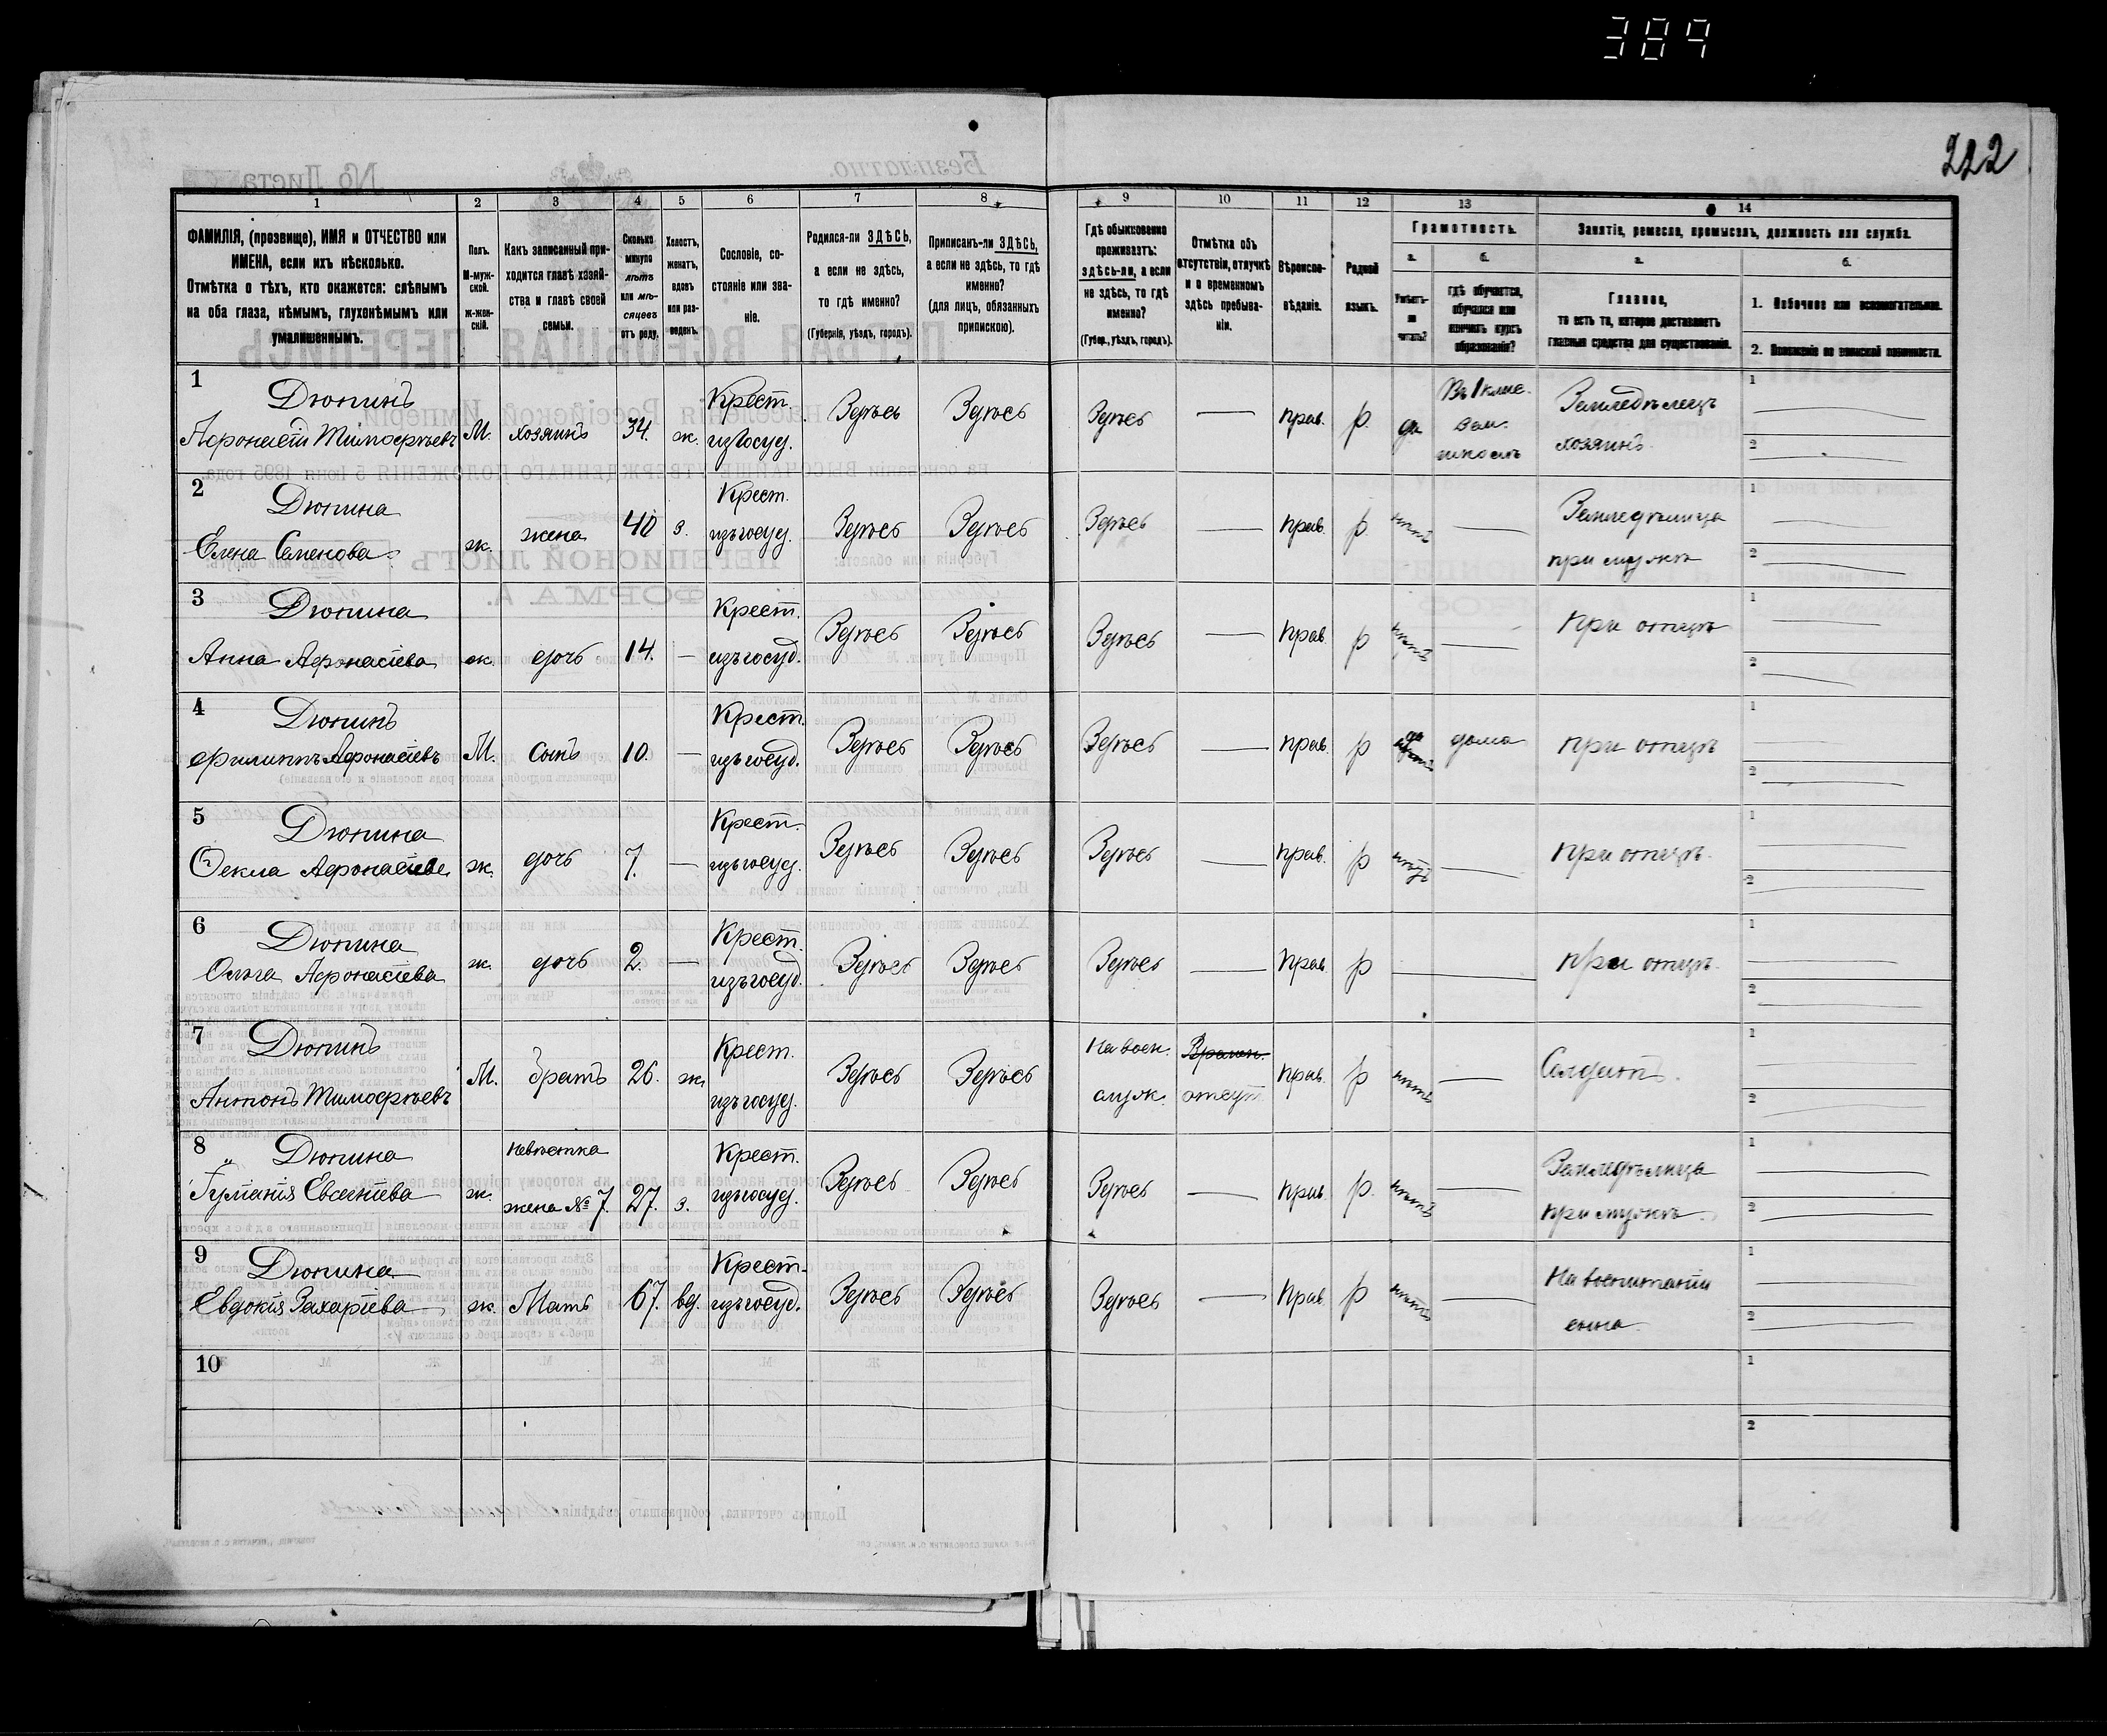 389
222
1 2 3 4 5 6 7 8 9 10 11 12 13 14
ФАМИЛІЯ, (прозвище), ИМЯ и ОТЧЕСТВО или
ИМЕНА, если ихъ нѣсколько.
Отмѣтка о тѣхъ, кто окажется: слѣпымъ
на оба глаза, нѣмымъ, глухонѣмымъ или
умалишеннымъ.
Полъ.
М-муж-
ской.
ж-жен-
скій.
Какъ записанный при-
ходится главѣ хозяй-
ства и главѣ своей
семьи.
Сколько
минуло
лѣтъ
или мѣ-
сяцевъ
отъ роду.
Холостъ,
женатъ,
вдовъ
или раз-
веденъ.
Сословіе, со-
стояніе или зва-
ніе.
Родился-ли ЗДѢСЬ,
а если не здѣсь,
то гдѣ именно?
(Губернія, уѣздъ, городъ).
Приписанъ-ли ЗДѢСЬ,
а если не здѣсь, то гдѣ
именно?
(для лицъ, обязанныхъ
припискою).
Гдѣ обыкновенно
проживаетъ:
здѣсь-ли, а если
не здѣсь, то гдѣ
именно?
(Губер., уѣздъ, городъ).
Отмѣтка объ
отсутствіи, отлучкѣ
и о временномъ
здѣсь пребыва-
ніи.
Вѣроиспо-
вѣданіе.
Родной
языкъ.
Грамотность.
а.
Умѣетъ-
ли
читать?
б.
гдѣ обучается,
обучался или
кончилъ курсъ
образованія?
Занятіе, ремесло, промыселъ, должность или служба.
а.
Главное,
то есть то, которое доставляетъ
главныя средства для существованія.
б.
1. Побочное или вспомогательное.
2. Положеніе по воинской повинности.
1 Дюпинъ
Афонасій Тимофѣевъ М. хозяинъ 34. ж. Крест. изъ госуд. Здѣсь Здѣсь Здѣсь — прав. р. да Въ 1 клас. зем. школѣ Земледѣлецъ хозяинъ. 1 — 2 —
2 Дюпина
Елена Семенова ж. жена 40 з. Крест. изъ госуд. Здѣсь Здѣсь Здѣсь — прав. р нѣтъ — Земледѣлица при мужѣ 1 — 2 —
3 Дюпина
Анна Афонасіева ж. дочь 14. — Крест. изъ госуд. Здѣсь Здѣсь Здѣсь — прав р нѣтъ — при отцѣ 1 — 2 —
4 Дюпинъ
Филиппъ Афонасіевъ М. сынъ 10. — Крест. изъ госуд. Здѣсь Здѣсь Здѣсь — прав. р да дома при отцѣ 1 — 2 —
5 Дюпина
Ѳекла Афонасіева ж. дочь 7. — Крест. изъ госуд. Здѣсь Здѣсь Здѣсь — прав. р нѣтъ — при отцѣ. 1 — 2 —
6 Дюпина
Ольга Афонасіева ж. дочь 2. — Крест. изъ госуд. Здѣсь Здѣсь Здѣсь — прав. р — при отцѣ. 1 — 2 —
7 Дюпинъ
Антонъ Тимофѣевъ М. братъ 26. ж. Крест. изъ госуд. Здѣсь Здѣсь На воен. служ. Времен. отсут. прав. р нѣтъ — Солдатъ. 1 — 2 —
8 Дюпина
Евгеніева ж. невѣстка жена № 7. 27. з. Крест. изъ госуд. Здѣсь Здѣсь Здѣсь — прав. р. нѣтъ — Земледѣлица при мужѣ. 1 — 2 —
9 Дюпина
Евдокія Захаріева ж. Мать 67. вд. Крест. изъ госуд. Здѣсь Здѣсь Здѣсь — прав. р нѣтъ — На воспитаніи сына. 1 — 2 —
10 1 2